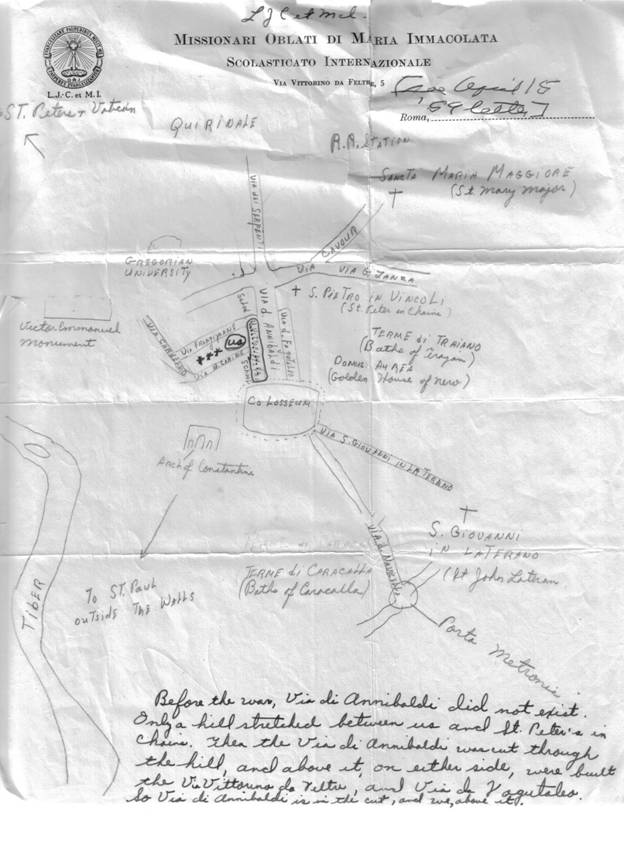 L J C et M.I.
MISSIONARI OBLATI DI MARIA IMMACOLATA
SCOLASTICATO INTERNAZIONALE
VIA VITTORINO DA FELTRE, 5
L.J.-C. et M.I.
[see April 15
'59 letter]
Roma,
ST. Peters + Vatican
QUIRINALE
R.R. STATION
SANCTA MARIA MAGGIORE
(St Mary Major)
VIA dei SERPENTI
VIA CAVOUR
VIA G. LANZA
GREGORIAN
UNIVERSITY
S. PIETRO IN VINCOLI
(St. Peter in Chains)
Victor Emmanuel
Monument
VIA d. ANNIBALDI
VIA FRANGIPANE
US
VIA d. CARINE
TERME di TRAIANO
(Baths of Trajan)
DOMUS AUREA
(Golden House of Nero)
COLOSSEUM
VIA S. GIOVANNI IN LATERANO
Arch of Constantine
S. GIOVANNI
IN LATERANO
(St John Lateran
TERME di CARACALLA
(Baths of Caracalla)
To ST. PAUL
OUTSIDE THE WALLS
TIBER
Porta Metronia
Before the war, Via di Annibaldi did not exist.
Only a hill stretched between us and St. Peter's in
Chains. Then the Via di Annibaldi was cut through
the hill, and above it, on either side, were built
the Via Vittorino da Feltre, and Via de Fagutales.
So Via di Annibaldi is in the cut, and we, above it.